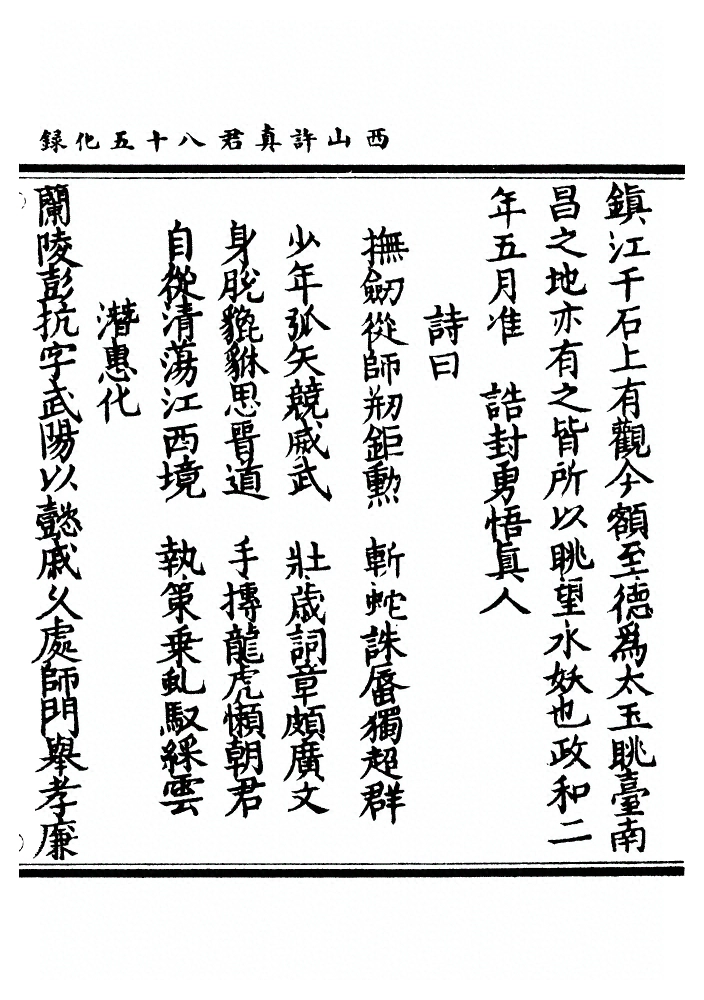 西山許真君八十五化録
鎮江千石上有觀今額至德爲太玉眺臺南
昌之地亦有之皆所以眺望水妖也政和二
年五月准　誥封勇悟眞人
詩曰
撫劒從師剏鉅勲　斬蛇誅蜃獨超群
少年弧矢競威武　壯歲詞章頗廣文
身脫貔貅思晉道　手摶龍虎懶朝君
自從清蕩江西境　執策乗虬馭綵雲
潛惠化
蘭陵彭抗字武陽以懿戚乆處師門舉孝廉